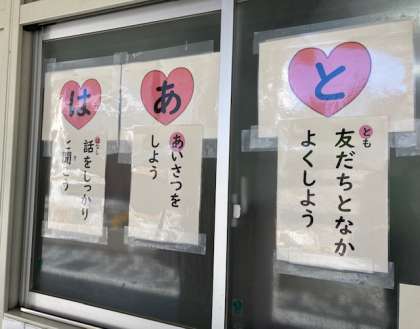 は
はなし
話をしっかり
き
と聞こう
あ
あいさつを
しよう
と
とも
友だちとなか
よくしよう